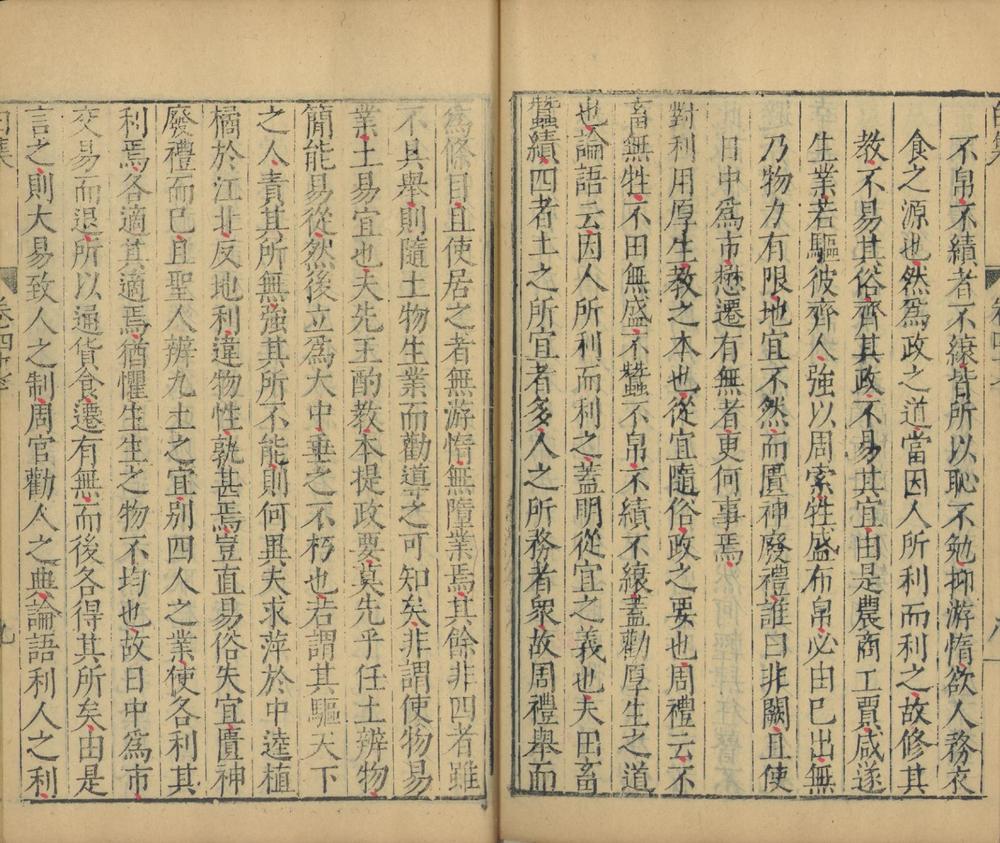 不帛不績者不縗皆所以恥不勉抑游惰欲人務衣
食之源也然爲政之道當因人所利而利之故修其
教不易其俗齊其政不易其宜由是農商工賈咸遂
生業若驅彼齊人強以周索牲盛布帛必由已出無
乃物力有限地宜不然而匱神廢禮誰曰非闕且使
日中爲市懋遷有無者更何事焉
對利用厚生教之本也從宜隨俗政之要也周禮云不
畜無牲不田無盛不蠶不帛不績不縗蓋勸厚生之道
也論語云因人所利而利之蓋明從宜之義也夫田畜
蠶績四者土之所宜者多人之所務者衆故周禮舉而
爲條目且使居之者無游惰無墮業焉其餘非四者雖
不具舉則隨土物生業而勸導之可知矣非謂使物易
業土易宜也夫先王酌教本提政要莫先乎任土辨物
簡能易從然後立爲大中垂之不朽也若謂其驅天下
之人責其所無強其所不能則何異夫求萍於中逵植
橘於江北反地利違物性孰甚焉豈直易俗失宜匱神
廢禮而已且聖人辨九土之宜別四人之業使各利其
利焉各適其適焉猶懼生生之物不均也故日中爲市
交易而退所以通貨食遷有無而後各得其所矣由是
言之則大易致人之制周官勸人之典論語利人之利
卷四十
九